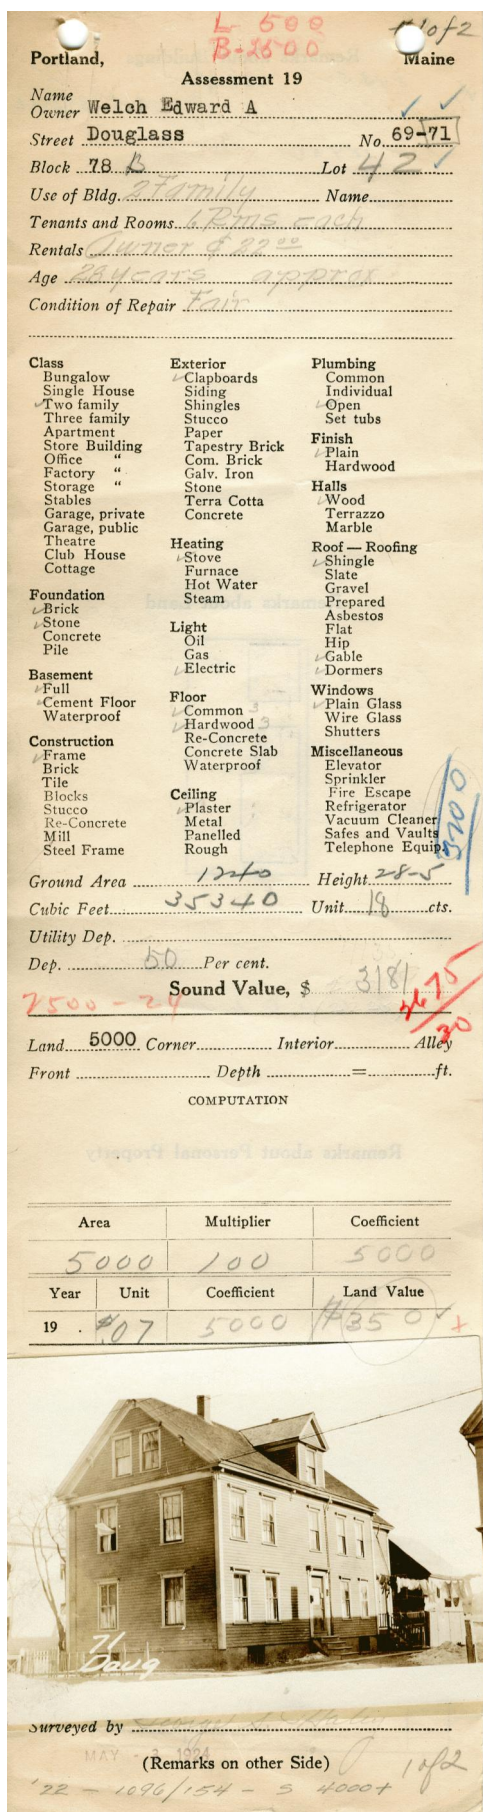 L- 500
B-2500
#1 of 2
Portland, Maine
Assessment 19
Name
Owner Welch Edward A
Street Douglass No. 69-71
Block 78 B Lot 42
Use of Bldg. 2 Family Name
Tenants and Rooms 6 Rms each
Rentals Owner $22.00
Age 28 years approx
Condition of Repair Fair
Class
Bungalow
Single House
✓Two family
Three family
Apartment
Store Building
Office "
Factory "
Storage "
Stables
Garage, private
Garage, public
Theatre
Club House
Cottage
Foundation
✓Brick
✓Stone
Concrete
Pile
Basement
✓Full
✓Cement Floor
Waterproof
Construction
✓Frame
Brick
Tile
Blocks
Stucco
Re-Concrete
Mill
Steel Frame
Exterior
✓Clapboards
Siding
Shingles
Stucco
Paper
Tapestry Brick
Com. Brick
Galv. Iron
Stone
Terra Cotta
Concrete
Heating
✓Stove
Furnace
Hot Water
Steam
Light
Oil
Gas
✓Electric
Floor
✓Common 3
✓Hardwood 3
Re-Concrete
Concrete Slab
Waterproof
Ceiling
✓Plaster
Metal
Panelled
Rough
Plumbing
Common
Individual
✓Open
Set tubs
Finish
✓Plain
Hardwood
Halls
✓Wood
Terrazzo
Marble
Roof — Roofing
✓Shingle
Slate
Gravel
Prepared
Asbestos
Flat
Hip
✓Gable
✓Dormers
Windows
✓Plain Glass
Wire Glass
Shutters
Miscellaneous
Elevator
Sprinkler
Fire Escape
Refrigerator
Vacuum Cleaner
Safes and Vaults
Telephone Equip.
Ground Area 1240 Height 28-5
Cubic Feet 35340 Unit 18 cts.
Utility Dep.
Dep. 50 Per cent.
Sound Value, $ 3181
2500 - 24
2675
30
Land 5000 Corner Interior Alley
Front Depth = ft.
COMPUTATION
Area Multiplier Coefficient
5000 100 5000
Year Unit Coefficient Land Value
19 . $.07 5000 $350 ✓ +
71
Doug
Surveyed by
MAY - 3 1924
(Remarks on other Side)
1 of 2
'22 - 1096/154 - S 4000+